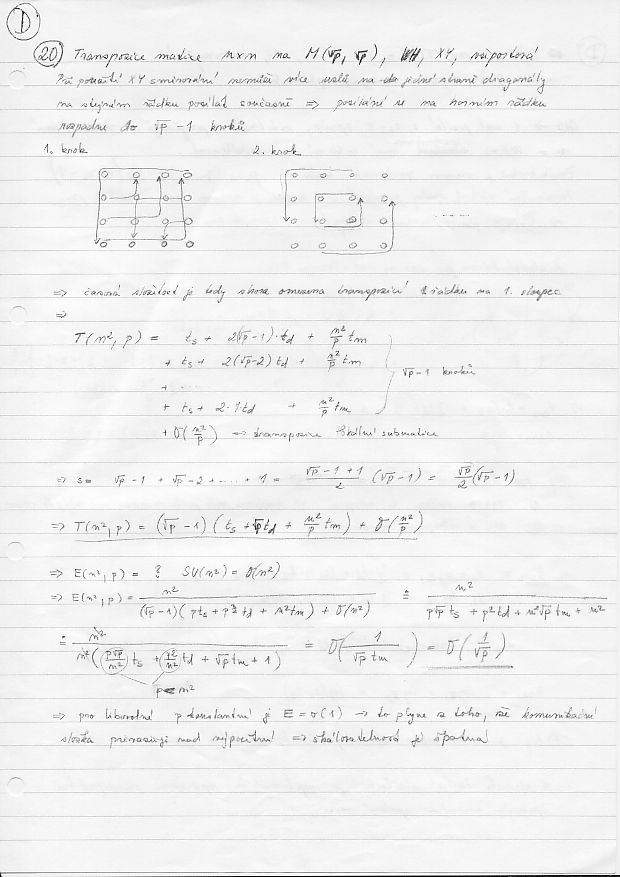 D
20) Transpozice matice n×n na M(√p, √p), WH, XY, všeportová
Při použití XY směrování nemůže více uzlů na jedné straně diagonály
na stejném řádku posílat současně ⇒ posílání se na horním řádku
rozpadne do √p - 1 kroků
1. krok 2. krok
.....
⇒ časová složitost je tedy shora omezena transpozicí 1. řádku na 1. sloupec
⇒
T(n², p) = ts + 2(√p-1)·td + n²/p tm
+ ts + 2(√p-2) td + n²/p tm
+ ... √p-1 kroků
+ ts + 2·1·td + n²/p tm
+ O(n²/p) ⇒ transpozice lokální submatice
⇒ s = √p - 1 + √p - 2 + ... + 1 = (√p - 1 + 1)/2 (√p - 1) = √p/2 (√p - 1)
⇒ T(n², p) = (√p - 1) (ts + √p td + n²/p tm) + O(n²/p)
⇒ E(n², p) = ? SU(n²) = O(n²)
⇒ E(n², p) = n² / ((√p-1)(pts + p^(3/2) td + n² tm) + O(n²)) ≐ n² / (p√p ts + p² td + n²√p tm + n²)
≐ n² / (n² (p√p/n² ts + p²/n² td + √p tm + 1)) ≐ O(1/(√p tm)) = O(1/√p)
p n²
⇒ pro libovolné p konstantní je E = o(1) → to plyne z toho, že komunikační
složka převažuje nad výpočetní ⇒ škálovatelnost je špatná